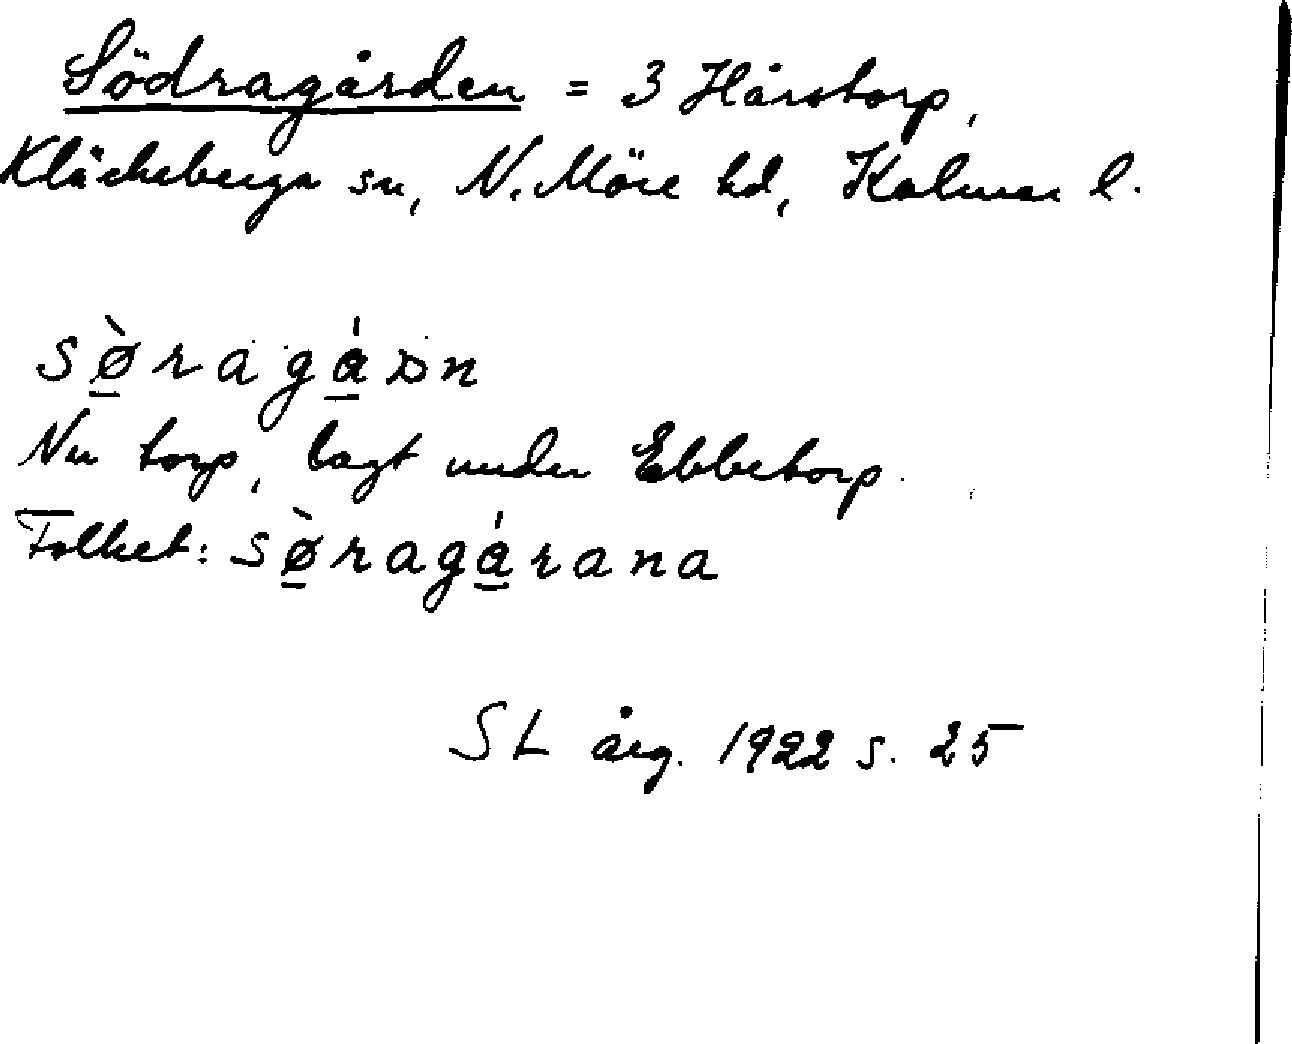 Södragården = 3 Hårstorp,
Kläckeberga sn, N. Möre hd, Kalmar l.
sø̀ragáꞩn
Nu torp, lagt under Ebbetorp.
Folket: sø̀ragárana
SL årg. 1922 s. 25